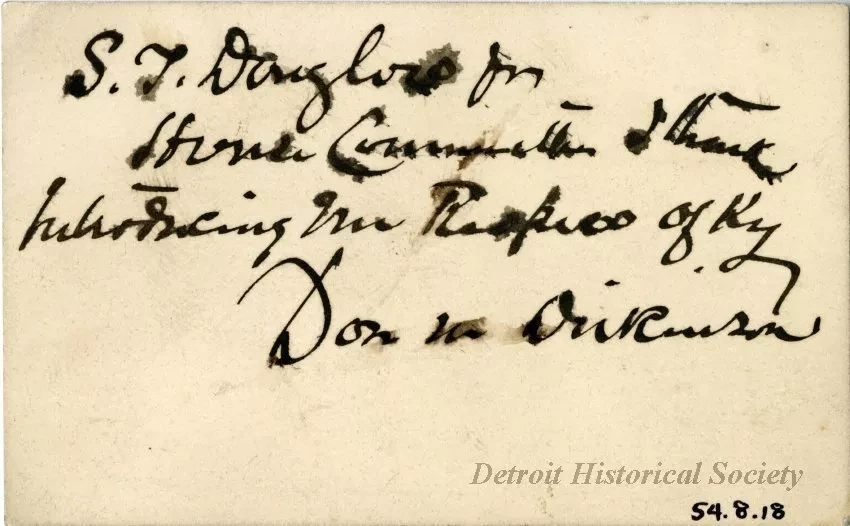 S. T. Douglass for
Committee I think
Introducing Mr of Ky
Don M Dickinson
Detroit Historical Society
54.8.18